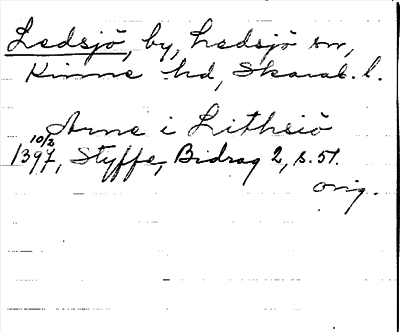 Ledsjö, by, Ledsjö sn,
Kinne hd, Skarab. l.
Arne i Lithsiö
10/2
1397, Styffe, Bidrag 2, s. 51.
orig.